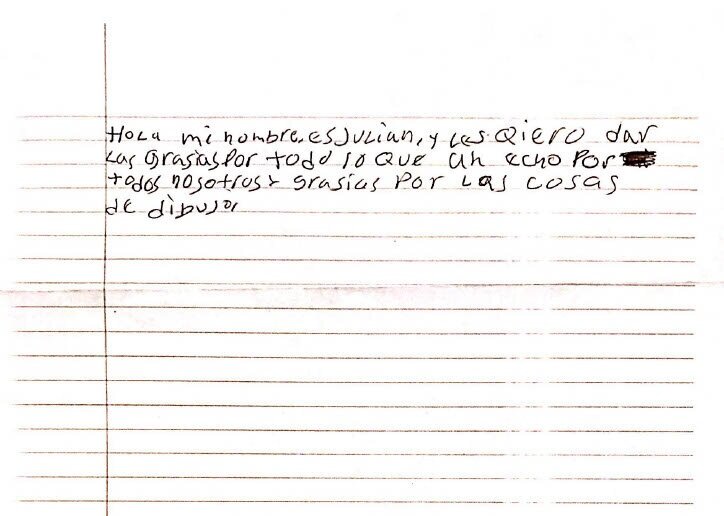 Hola mi nombre es Julian, y les Qiero dar
Las grasias Por todo lo Que an echo Por
todos nosotros y grasias Por Las cosas
de dibujar